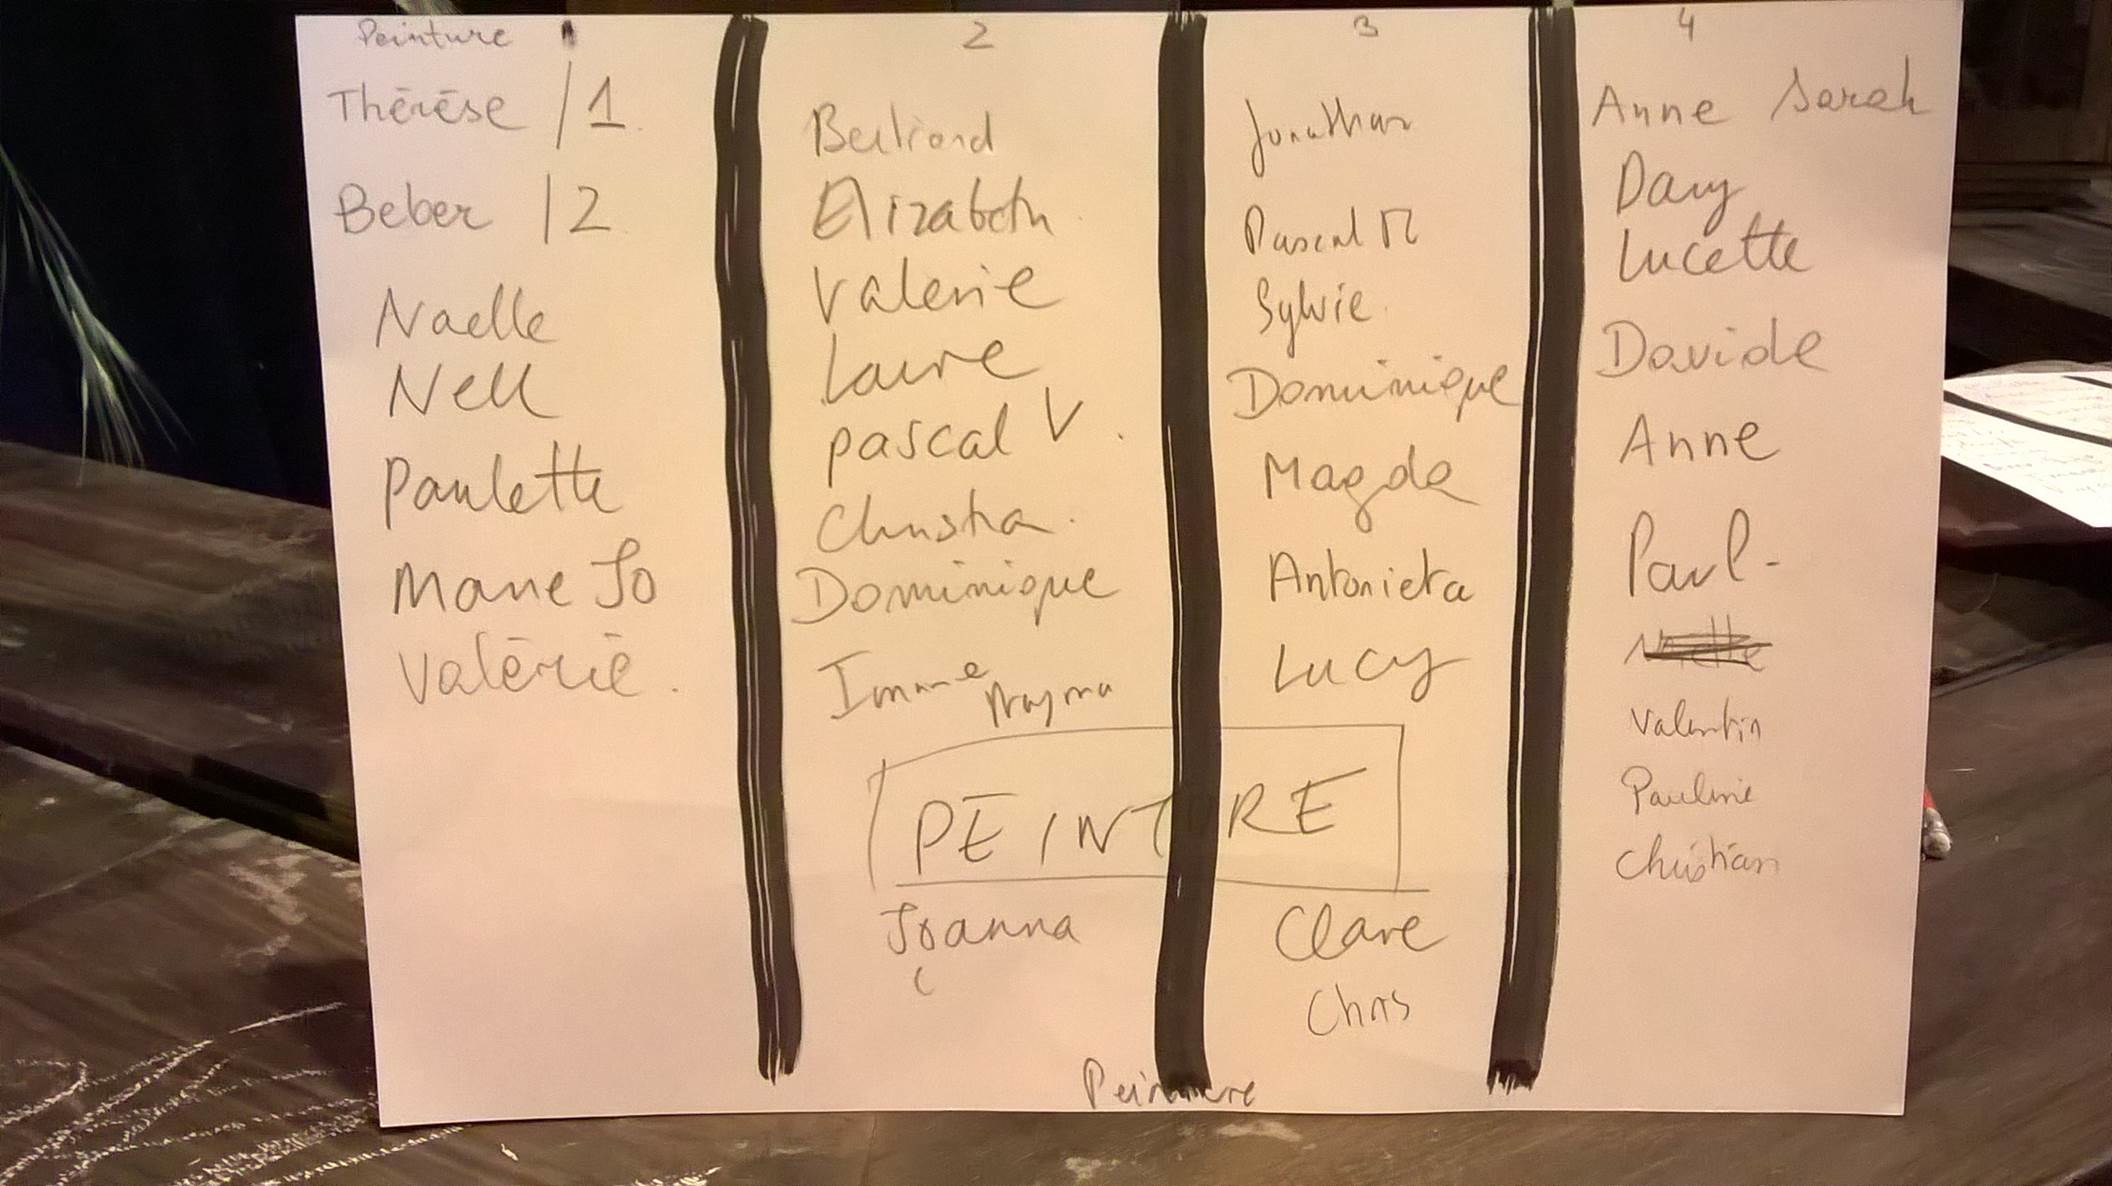 Peinture
Thérèse / 1
Beber / 2
Naelle
Nell
Paulette
Marie Jo
Valérie.
2
Bertrand
Elizabeth
Valerie
Laure
pascal V.
Christia.
Dominique
PEINTURE
Joanna
3
Jonathan
Pascal M
Sylvie.
Dominique
Magda
Antonieta
Lucy
Clare
Chris
4
Anne Sarah
Dany
Lucette
Davide
Anne
Paul-
Valentin
Pauline
Christian
Peinture